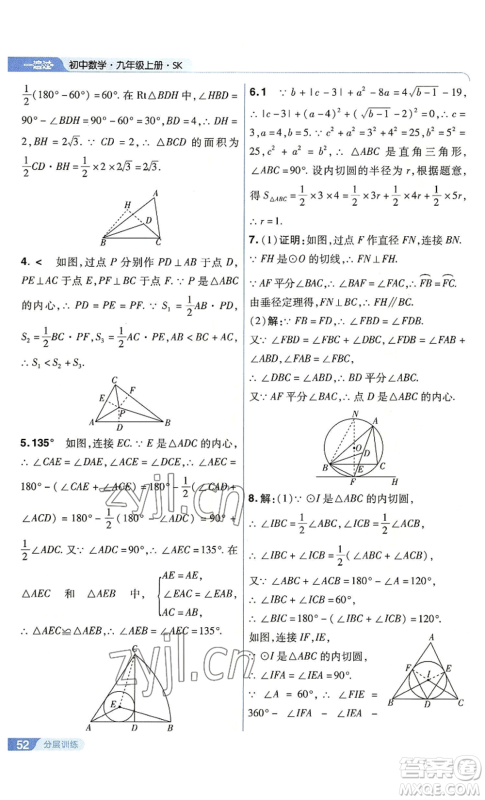 一遍过·
初中数学·九年级上册·SK
1/2(180°－60°)=60°. 在Rt△BDH中，∠HBD=
90°－∠BDH=90°－60°=30°，∵BD=4，∴DH=
2，BH=2√3. ∵CD=2，∴△BCD的面积为
1/2 CD·BH=1/2×2×2√3=2√3.
A
H
D
B
C
4. < 如图，过点P分别作PD⊥AB于点
D，PE⊥AC于点E，PF⊥BC于点F，∵P是△ABC
的内心，∴PD=PE=PF. ∵S₁=1/2AB·PD，
S₂=1/2BC·PF，S₃=1/2AC·PE，AB<BC+AC，
∴S₁<S₂+S₃.
C
E
F
P
A
D
B
5. 135° 如图，连接EC. ∵E是△ADC的内心，
∴∠CAE=∠DAE，∠ACE=∠DCE，∴∠AEC=
180°－(∠CAE+∠ACE)=180°－1/2(∠CAD+
∠ACD)=180°－1/2(180°－∠ADC)=90°+
1/2∠ADC. 又∵∠ADC=90°，∴∠AEC=135°. 在
△AEC和△AEB中，{AE=AE，
∠EAC=∠EAB，
AC=AB，
∴△AEC≌△AEB，∴∠AEB=∠AEC=135°.
C
E
A
D
B
6. 1 ∵b+|c－3|+a²－8a=4√(b－1)－19，
∴|c－3|+(a－4)²+(√(b－1)－2)²=0，∴c=3，
a=4，b=5. ∵3²+4²=5²，∴△ABC是直角三角形，
∠ABC=90°. 设内切圆的半径为r，根据题意，
得S△ABC=1/2×3×4=1/2×3r+1/2×4r+1/2×5r，
∴r=1.
7. (1)证明：如图，过点F作直径FN，连接BN.
∵FH是⊙O的切线，∴FN⊥FH.
∵AF平分∠BAC，∴∠BAF=∠FAC，∴FB=FC.
由垂径定理得，FN⊥BC，∴FH∥BC.
(2)解：∵∠FBD=∠FBC+∠CBD，∠FDB=
∠BAF+∠ABD，
又∵∠FBC=∠FAC=∠BAF，BF=DF，
∴∠FBD=∠FDB，∴∠CBD=∠ABD.
又∵AF平分∠BAC，∴点D是△ABC的内心.
N
A
O
D
B
C
F
H
8. 解：(1)∵⊙I是△ABC的内切圆，
∴∠IBA=∠IBC，∠ICA=∠ICB.
∵∠IBC+∠ICB=180°－∠BIC=60°，
∴∠ABC+∠ACB=120°.
又∵∠ABC+∠ACB=180°－∠A，
∴∠A=60°.
如图，连接IF，IE，
∵⊙I是△ABC的内切圆，
∴∠IFA=∠IEA=90°.
∵∠A=60°，∴∠FIE=
360°－∠IFA－∠IEA－
A
F
E
I
B
D
C
52
分层训练
zyjl.cn
zyjl.cn
答案圈
MXQE.COM